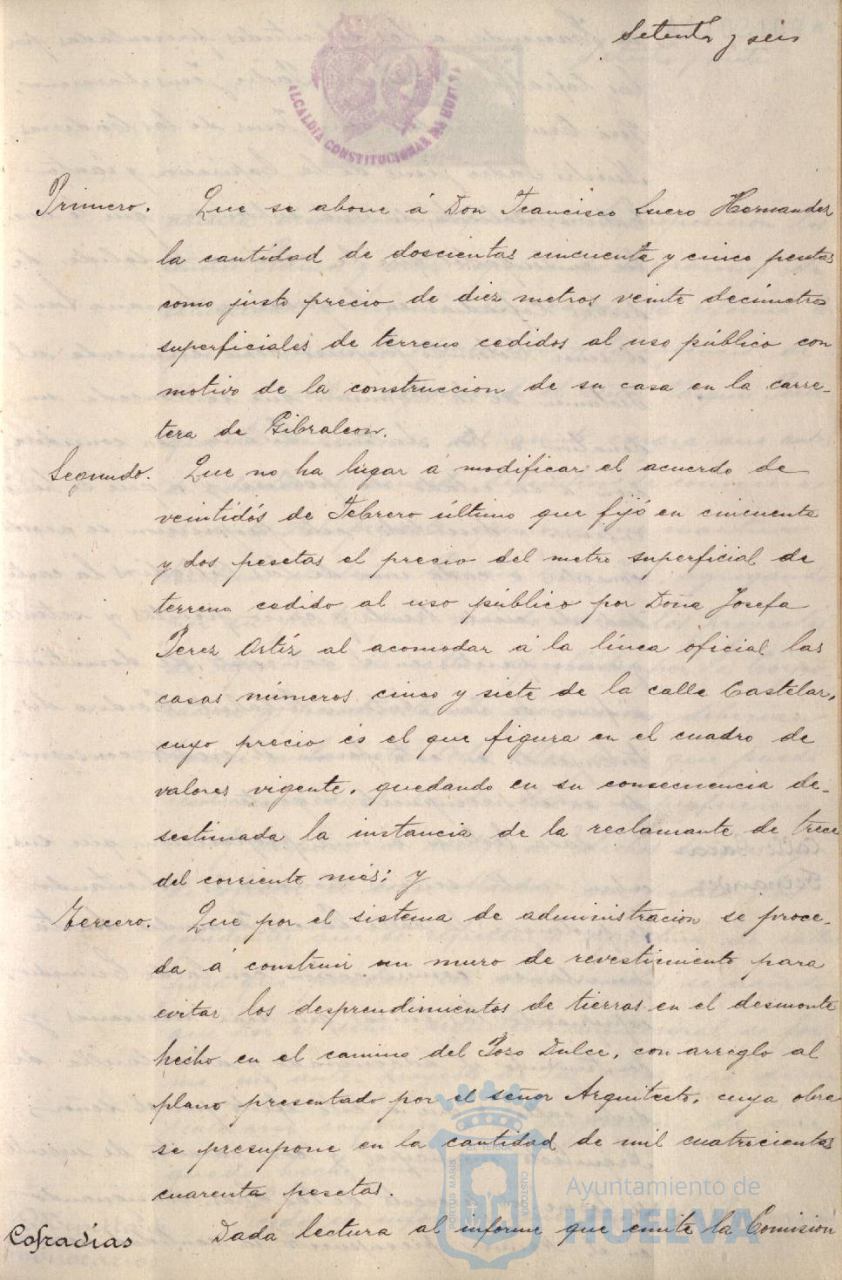 Setenta y seis
ALCALDIA CONSTITUCIONAL DE HUELVA
Primero. Que se abone á Don Francisco Suero Hernandez
la cantidad de doscientas cincuenta y cinco pesetas
como justo precio de diez metros veinte decímetros
superficiales de terreno cedidos al uso público con
motivo de la construccion de su casa en la carre-
tera de Gibraleon.
Segundo. Que no ha lugar á modificar el acuerdo de
veintidós de Febrero último que fijó en cincuenta
y dos pesetas el precio del metro superficial de
terreno cedido al uso público por Doña Josefa
Perez Ortíz al acomodar á la línea oficial las
casas números cinco y siete de la calle Castelar,
cuyo precio és el que figura en el cuadro de
valores vigente, quedando en su consecuencia de-
sestimada la instancia de la reclamante de trece
del corriente mes; y
Tercero. Que por el sistema de administracion se proce-
da á construir un muro de revestimiento para
evitar los desprendimientos de tierras en el desmonte
hecho en el camino del Pozo Dulce, con arreglo al
plano presentado por el señor Arquitecto, cuya obra
se presupone en la cantidad de mil cuatrocientas
cuarenta pesetas.
Cofradías Dada lectura al informe que emite la Comisión
PORTUS MARIS ET TERRAE CUSTODIA
Ayuntamiento de
HUELVA